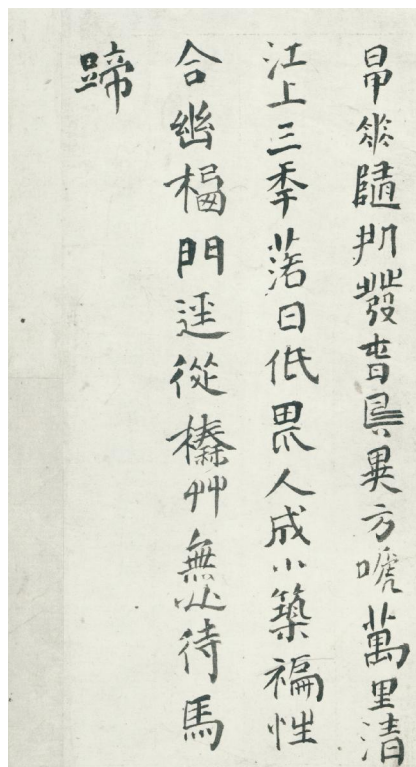 早花隨処發旾鳥異方嗁萬里清
江上三秊落日低畏人成小築褊性
合幽棲門逕從榛艸無心待馬
蹄